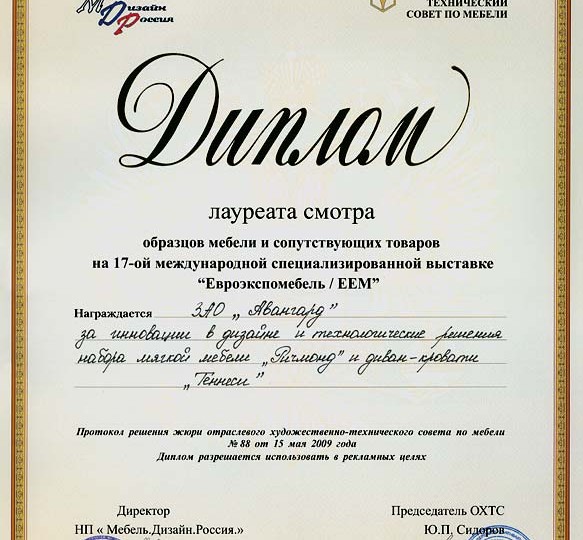 Дизайн
Россия
ТЕХНИЧЕСКИЙ
СОВЕТ ПО МЕБЕЛИ
Диплом
лауреата смотра
образцов мебели и сопутствующих товаров
на 17-ой международной специализированной выставке
“Евроэкспомебель / EEM”
Награждается ЗАО „Авангард”
за инновации в дизайне и технологические решения
набора мягкой мебели „Ричмонд” и диван-кровати
„Теннеси”
Протокол решения жюри отраслевого художественно-технического совета по мебели
№ 88 от 15 мая 2009 года
Диплом разрешается использовать в рекламных целях
Директор
НП « Мебель.Дизайн.Россия.»
Председатель ОХТС
Ю.П. Сидоров